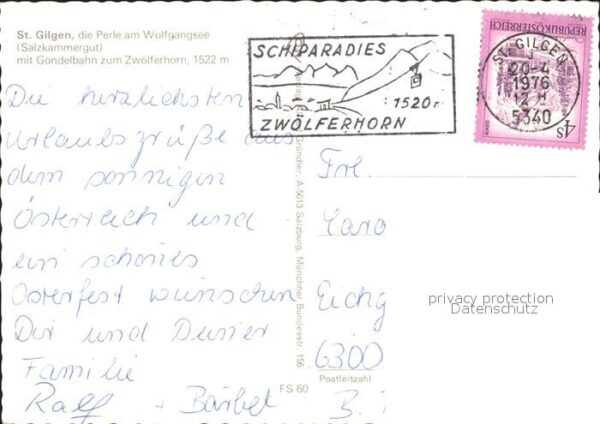 St. Gilgen, die Perle am Wolfgangsee
(Salzkammergut)
mit Gondelbahn zum Zwölferhorn, 1522 m
SCHIPARADIES
1520m
ZWÖLFERHORN
REPUBLIK ÖSTERREICH
4S
ST. GILGEN
20-4
1976
12 H
5340
Die herzlichsten
Urlaubsgrüße aus
dem sonnigen
Österreich und
ein schönes
Osterfest wünschen
Dir und Deiner
Familie
Ralf + Bärbel B.
Grundler, A-5013 Salzburg, Münchner Bundesstr. 156
Frl.
Caro
Eichg
6300
Postleitzahl
FS 60
privacy protection
Datenschutz